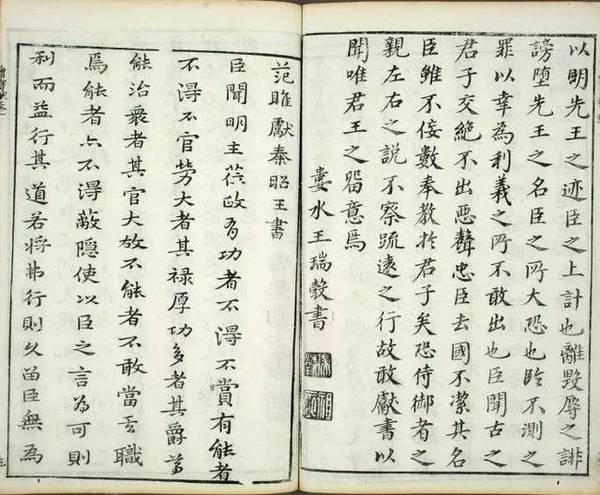 以明先王之迹臣之上計也離毀辱之誹
謗墮先王之名臣之所大恐也臨不測之
罪以幸為利義之所不敢出也臣聞古之
君子交絕不出惡聲忠臣去國不潔其名
臣雖不佞數奉教於君子矣恐侍御者之
親左右之說不察疏遠之行故敢獻書以
聞唯君王之留意焉
婁水王瑞穀書
范雎獻秦昭王書
臣聞明主莅政有功者不得不賞有能者
不得不官勞大者其祿厚功多者其爵尊
能治衆者其官大故不能者不敢當亓職
焉能者亦不得蔽隱使以臣之言為可則
利而益行其道若將弗行則久留臣無為